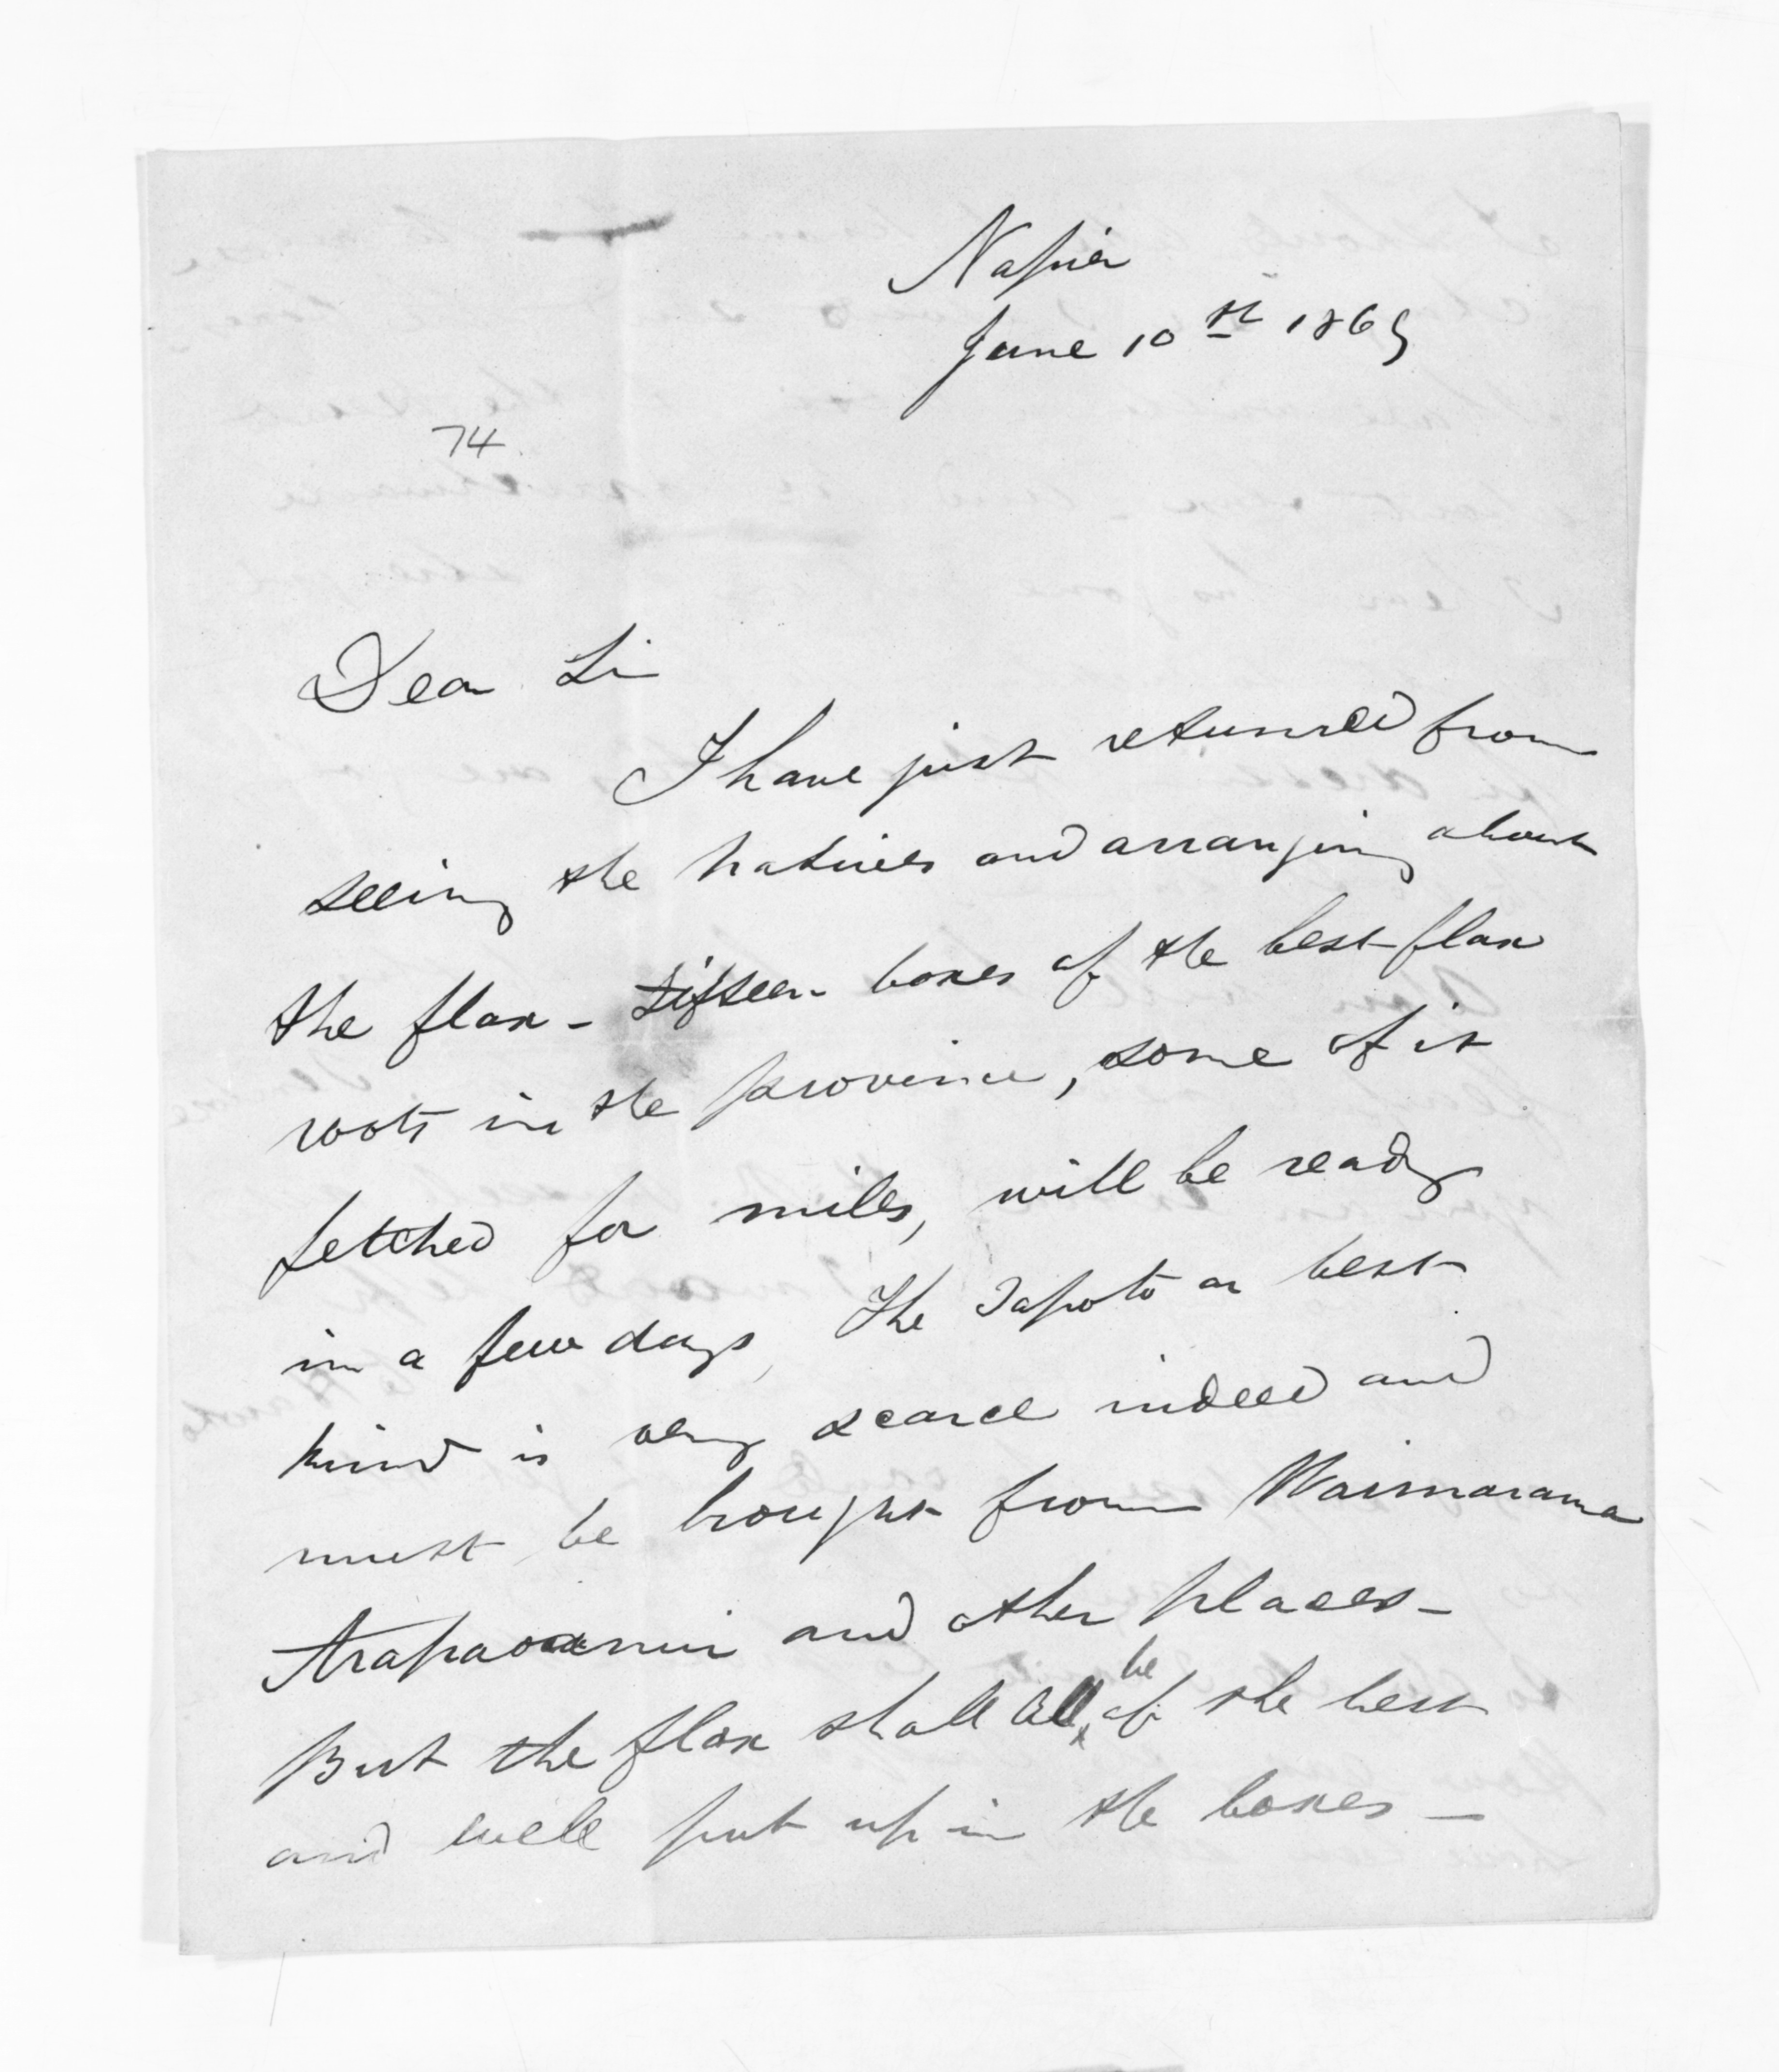 Napier
June 10th 1869
74.
Dear Sir
I have just returned from
seeing the natives and arranging about
the flax - Fifteen boxes of the best flax
roots in the province, some of it
fetched for miles, will be ready
in a few days, The Tapoto or best
kind is very scarce indeed and
must be brought from Waimarama
Arapaoanui and other places -
But the flax shall all be of the best
and well put up in the boxes -